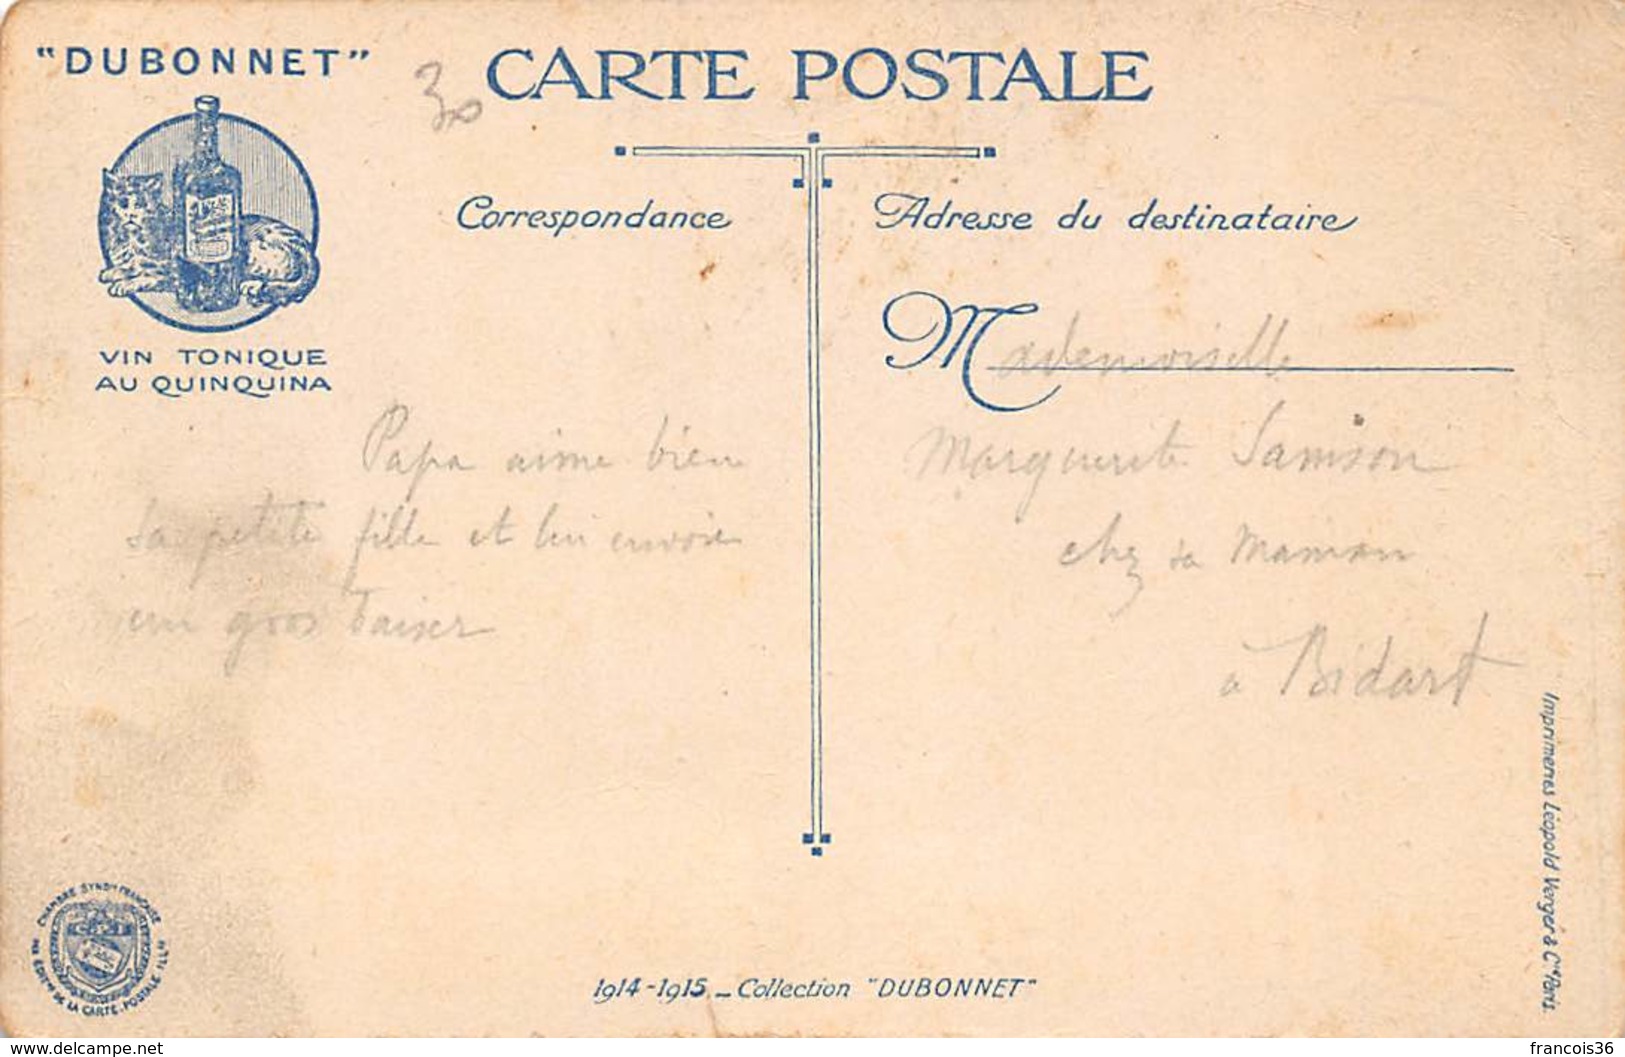 "DUBONNET"
30
CARTE POSTALE
VIN TONIQUE
AU QUINQUINA
Correspondance
Papa aime bien
sa petite fille et lui envoie
un gros baiser
Adresse du destinataire
Mademoiselle
Marguerite Samson
chez sa Maman
à Bidart
Imprimeries Léopold Verger & Cie Paris.
CHAMBRE SYNDle FRANÇAISE
DES EDITrs DE LA CARTE-POSTALE ILLée
1914-1915 _ Collection "DUBONNET"
delcampe.net
francois36